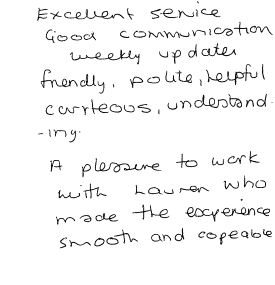 Excellent service
Good communication
weekly updates
friendly, polite, helpful
courteous, understand-
-ing.
A pleasure to work
with Lauren who
made the experience
smooth and copeable